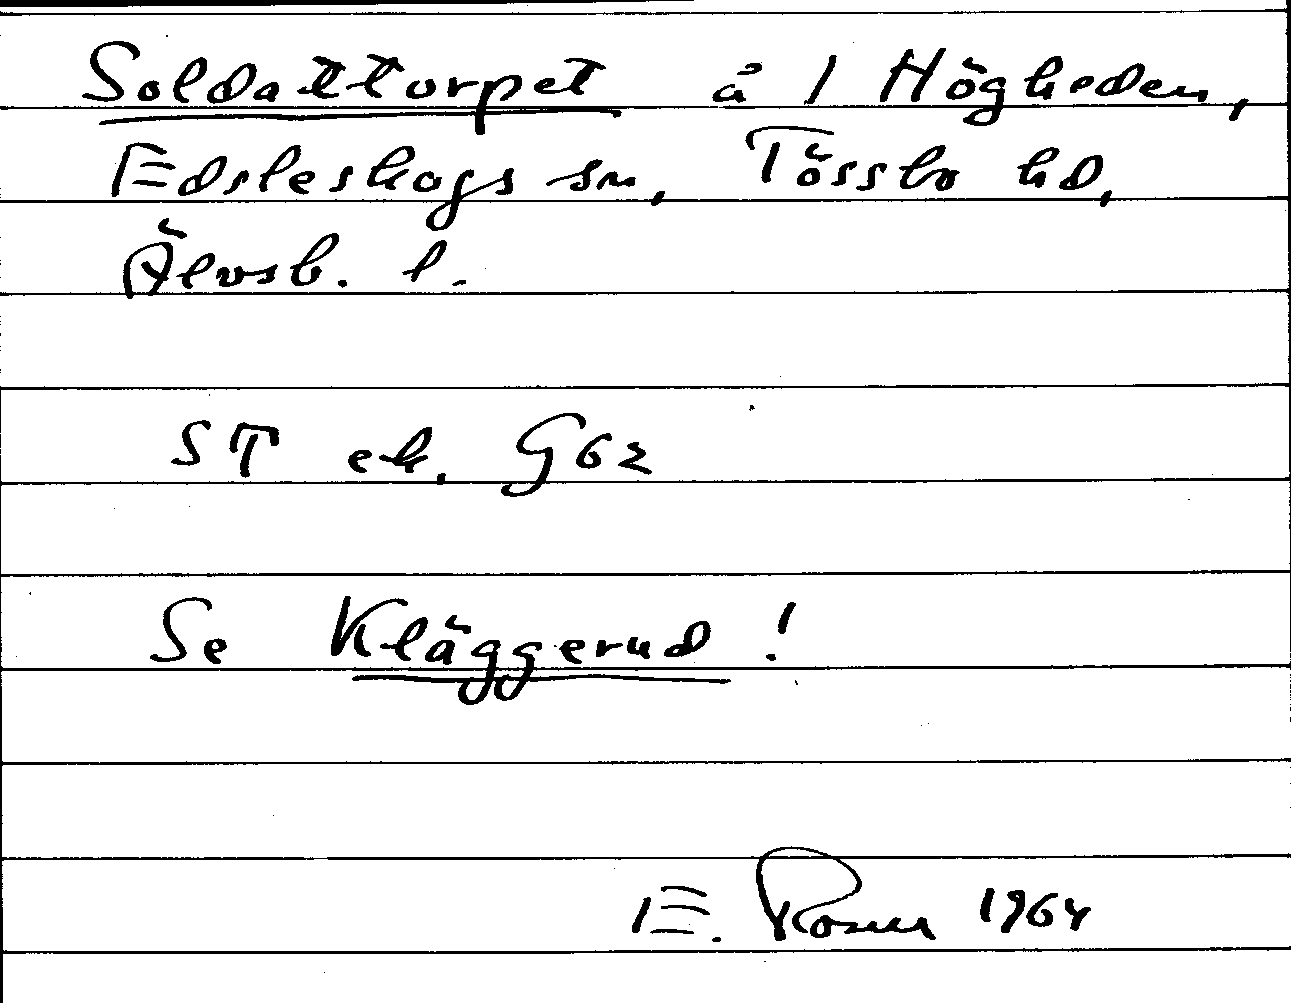 Soldattorpet å 1 Högheden,
Edsleskogs sn, Tössbo hd,
Älvsb. l.
ST ek. G62
Se Kläggerud!
E. 1964